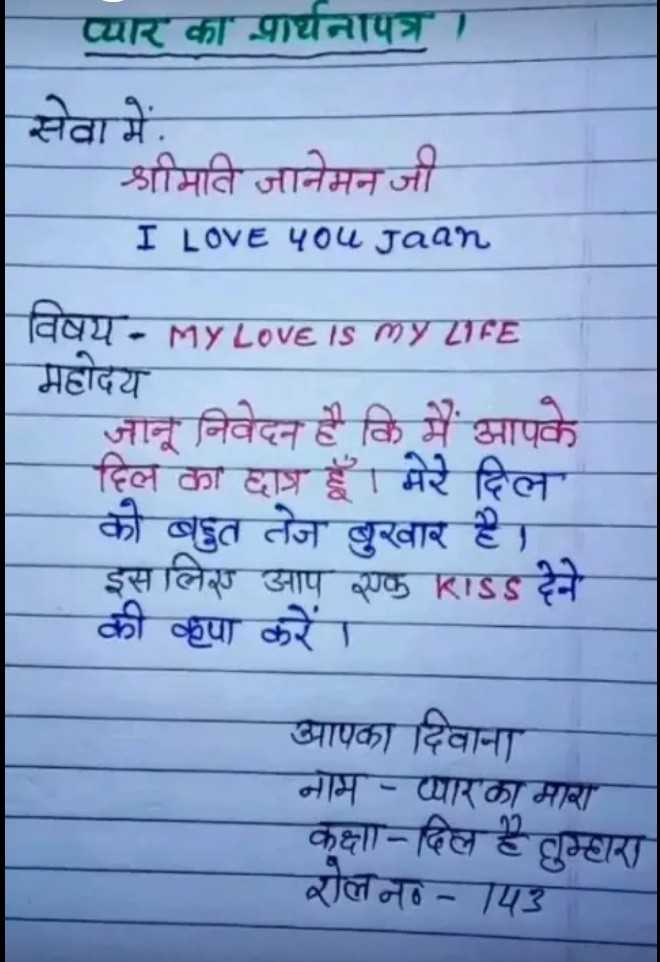 प्यार का प्रार्थनापत्र ।
सेवा में.
श्रीमति जानेमन जी
I LOVE YOU Jaan
विषय - MY LOVE IS MY LIFE
महोदय
जानू निवेदन है कि मैं आपके
दिल का छात्र हूँ । मेरे दिल
को बहुत तेज बुखार है ।
इसलिए आप एक KISS देने
की कृपा करें ।
आपका दिवाना
नाम - प्यार का मारा
कक्षा - दिल है तुम्हारा
रोल न० - 143